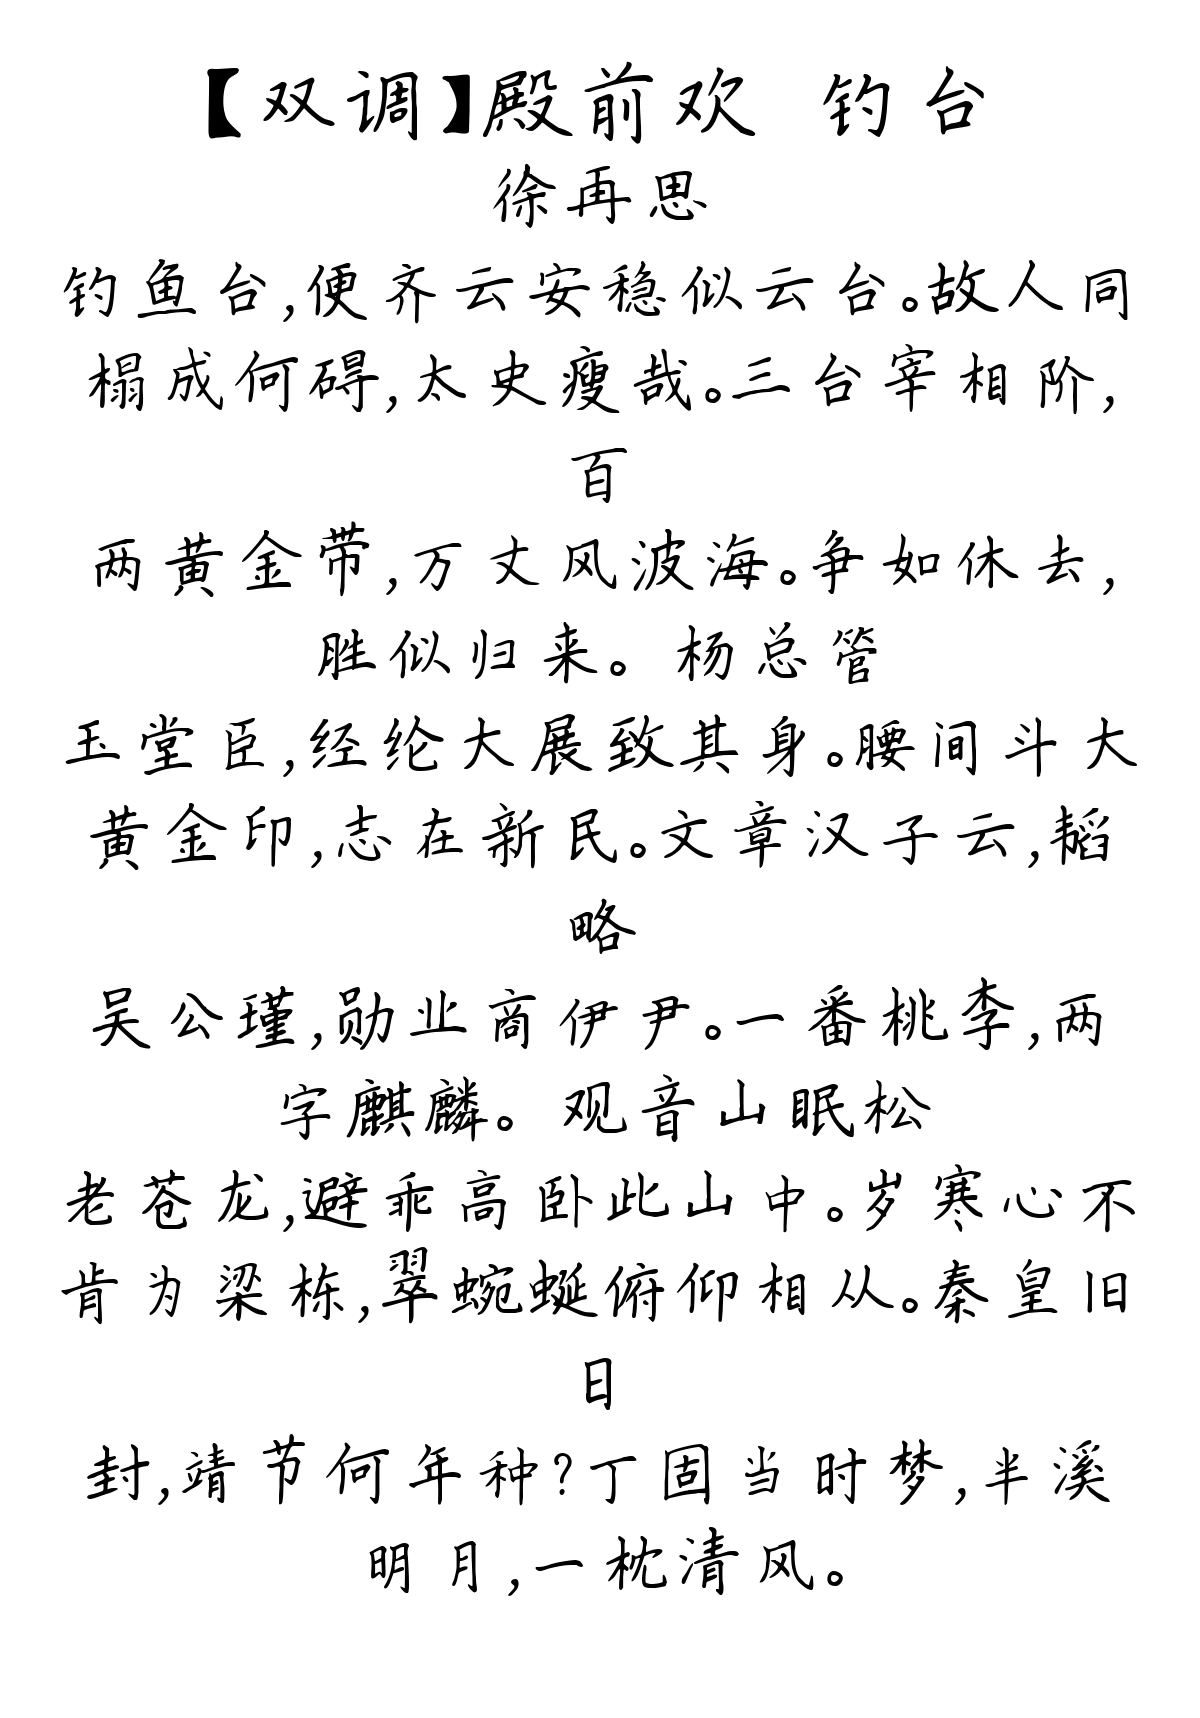 【双调】殿前欢  钓台
徐再思
钓鱼台,便齐云安稳似云台。故人同
榻成何碍,太史瘦哉。三台宰相阶,
百
两黄金带,万丈风波海。争如休去,
胜似归来。 杨总管
玉堂臣,经纶大展致其身。腰间斗大
黄金印,志在新民。文章汉子云,韬
略
吴公瑾,勋业商伊尹。一番桃李,两
字麒麟。 观音山眠松
老苍龙,避乖高卧此山中。岁寒心不
肯为梁栋,翠蜿蜒俯仰相从。秦皇旧
日
封,靖节何年种?丁固当时梦,半溪
明月,一枕清风。